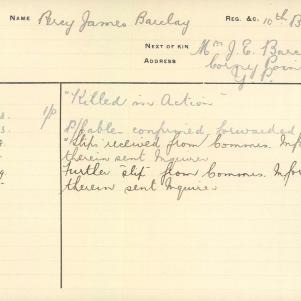 NAME Percy James Barclay REG. &C. 10th B
NEXT OF KIN Mrs J. E. Barc
ADDRESS Corny Poin
"Killed in Action"
P/Cable confirmed, forwarded
"Slip" received from Commns. Infor
therein sent Inquirer
Further "slip" from Commns. Infor
therein sent Inquirer